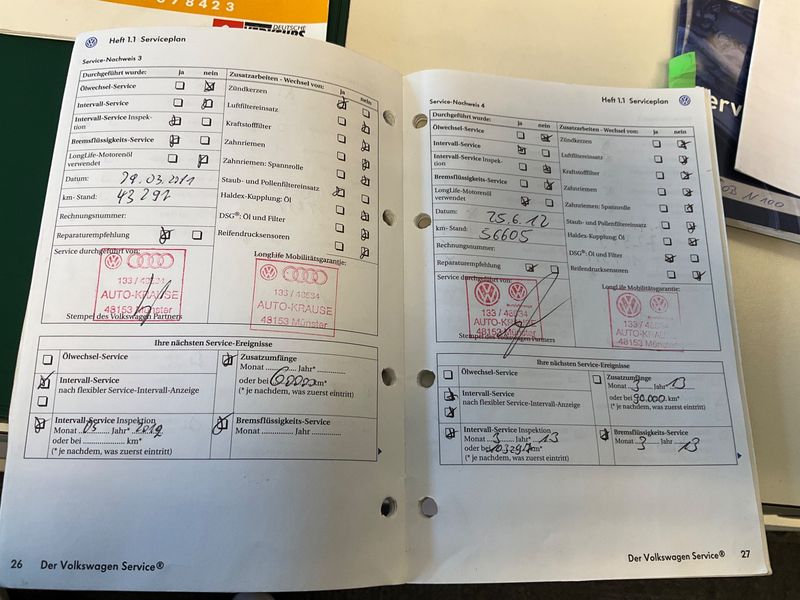 78423
DEUTSCHE
Heft 1.1 Serviceplan
Service-Nachweis 3
Durchgeführt wurde: ja nein
Ölwechsel-Service
Intervall-Service
Intervall-Service Inspek-
tion
Bremsflüssigkeits-Service
LongLife-Motorenöl
verwendet
Datum: 29.03.2011
km-Stand: 43291
Rechnungsnummer:
Reparaturempfehlung
Service durchgeführt von:
133 / 48534
AUTO-KRAUSE
48153 Münster
Stempel des Volkswagen Partners
Zusatzarbeiten - Wechsel von: ja nein
Zündkerzen
Luftfiltereinsatz
Kraftstofffilter
Zahnriemen
Zahnriemen: Spannrolle
Staub- und Pollenfiltereinsatz
Haldex-Kupplung: Öl
DSG®: Öl und Filter
Reifendrucksensoren
LongLife Mobilitätsgarantie:
133 / 48534
AUTO-KRAUSE
48153 Münster
Ihre nächsten Service-Ereignisse
Ölwechsel-Service
Intervall-Service
nach flexibler Service-Intervall-Anzeige
Intervall-Service Inspektion
Monat Jahr*
oder bei km*
(* je nachdem, was zuerst eintritt)
Zusatzumfänge
Monat Jahr*
oder bei 60000 km*
(* je nachdem, was zuerst eintritt)
Bremsflüssigkeits-Service
Monat Jahr
26 Der Volkswagen Service®
Service-Nachweis 4
Heft 1.1 Serviceplan
Durchgeführt wurde: ja nein
Ölwechsel-Service
Intervall-Service
Intervall-Service Inspek-
tion
Bremsflüssigkeits-Service
LongLife-Motorenöl
verwendet
Datum: 25.6.12
km-Stand: 56605
Rechnungsnummer:
Reparaturempfehlung
Service durchgeführt von:
133 / 48534
AUTO-KRAUSE
48153 Münster
Stempel des Volkswagen Partners
Zusatzarbeiten - Wechsel von: ja nein
Zündkerzen
Luftfiltereinsatz
Kraftstofffilter
Zahnriemen
Zahnriemen: Spannrolle
Staub- und Pollenfiltereinsatz
Haldex-Kupplung: Öl
DSG®: Öl und Filter
Reifendrucksensoren
LongLife Mobilitätsgarantie:
133 / 48534
AUTO-KRAUSE
48153 Münster
Ihre nächsten Service-Ereignisse
Ölwechsel-Service
Intervall-Service
nach flexibler Service-Intervall-Anzeige
Intervall-Service Inspektion
Monat 3 Jahr* 13
oder bei km*
(* je nachdem, was zuerst eintritt)
Zusatzumfänge
Monat 3 Jahr* 13
oder bei 90.000 km*
(* je nachdem, was zuerst eintritt)
Bremsflüssigkeits-Service
Monat 3 Jahr 13
Der Volkswagen Service® 27
OB N 100